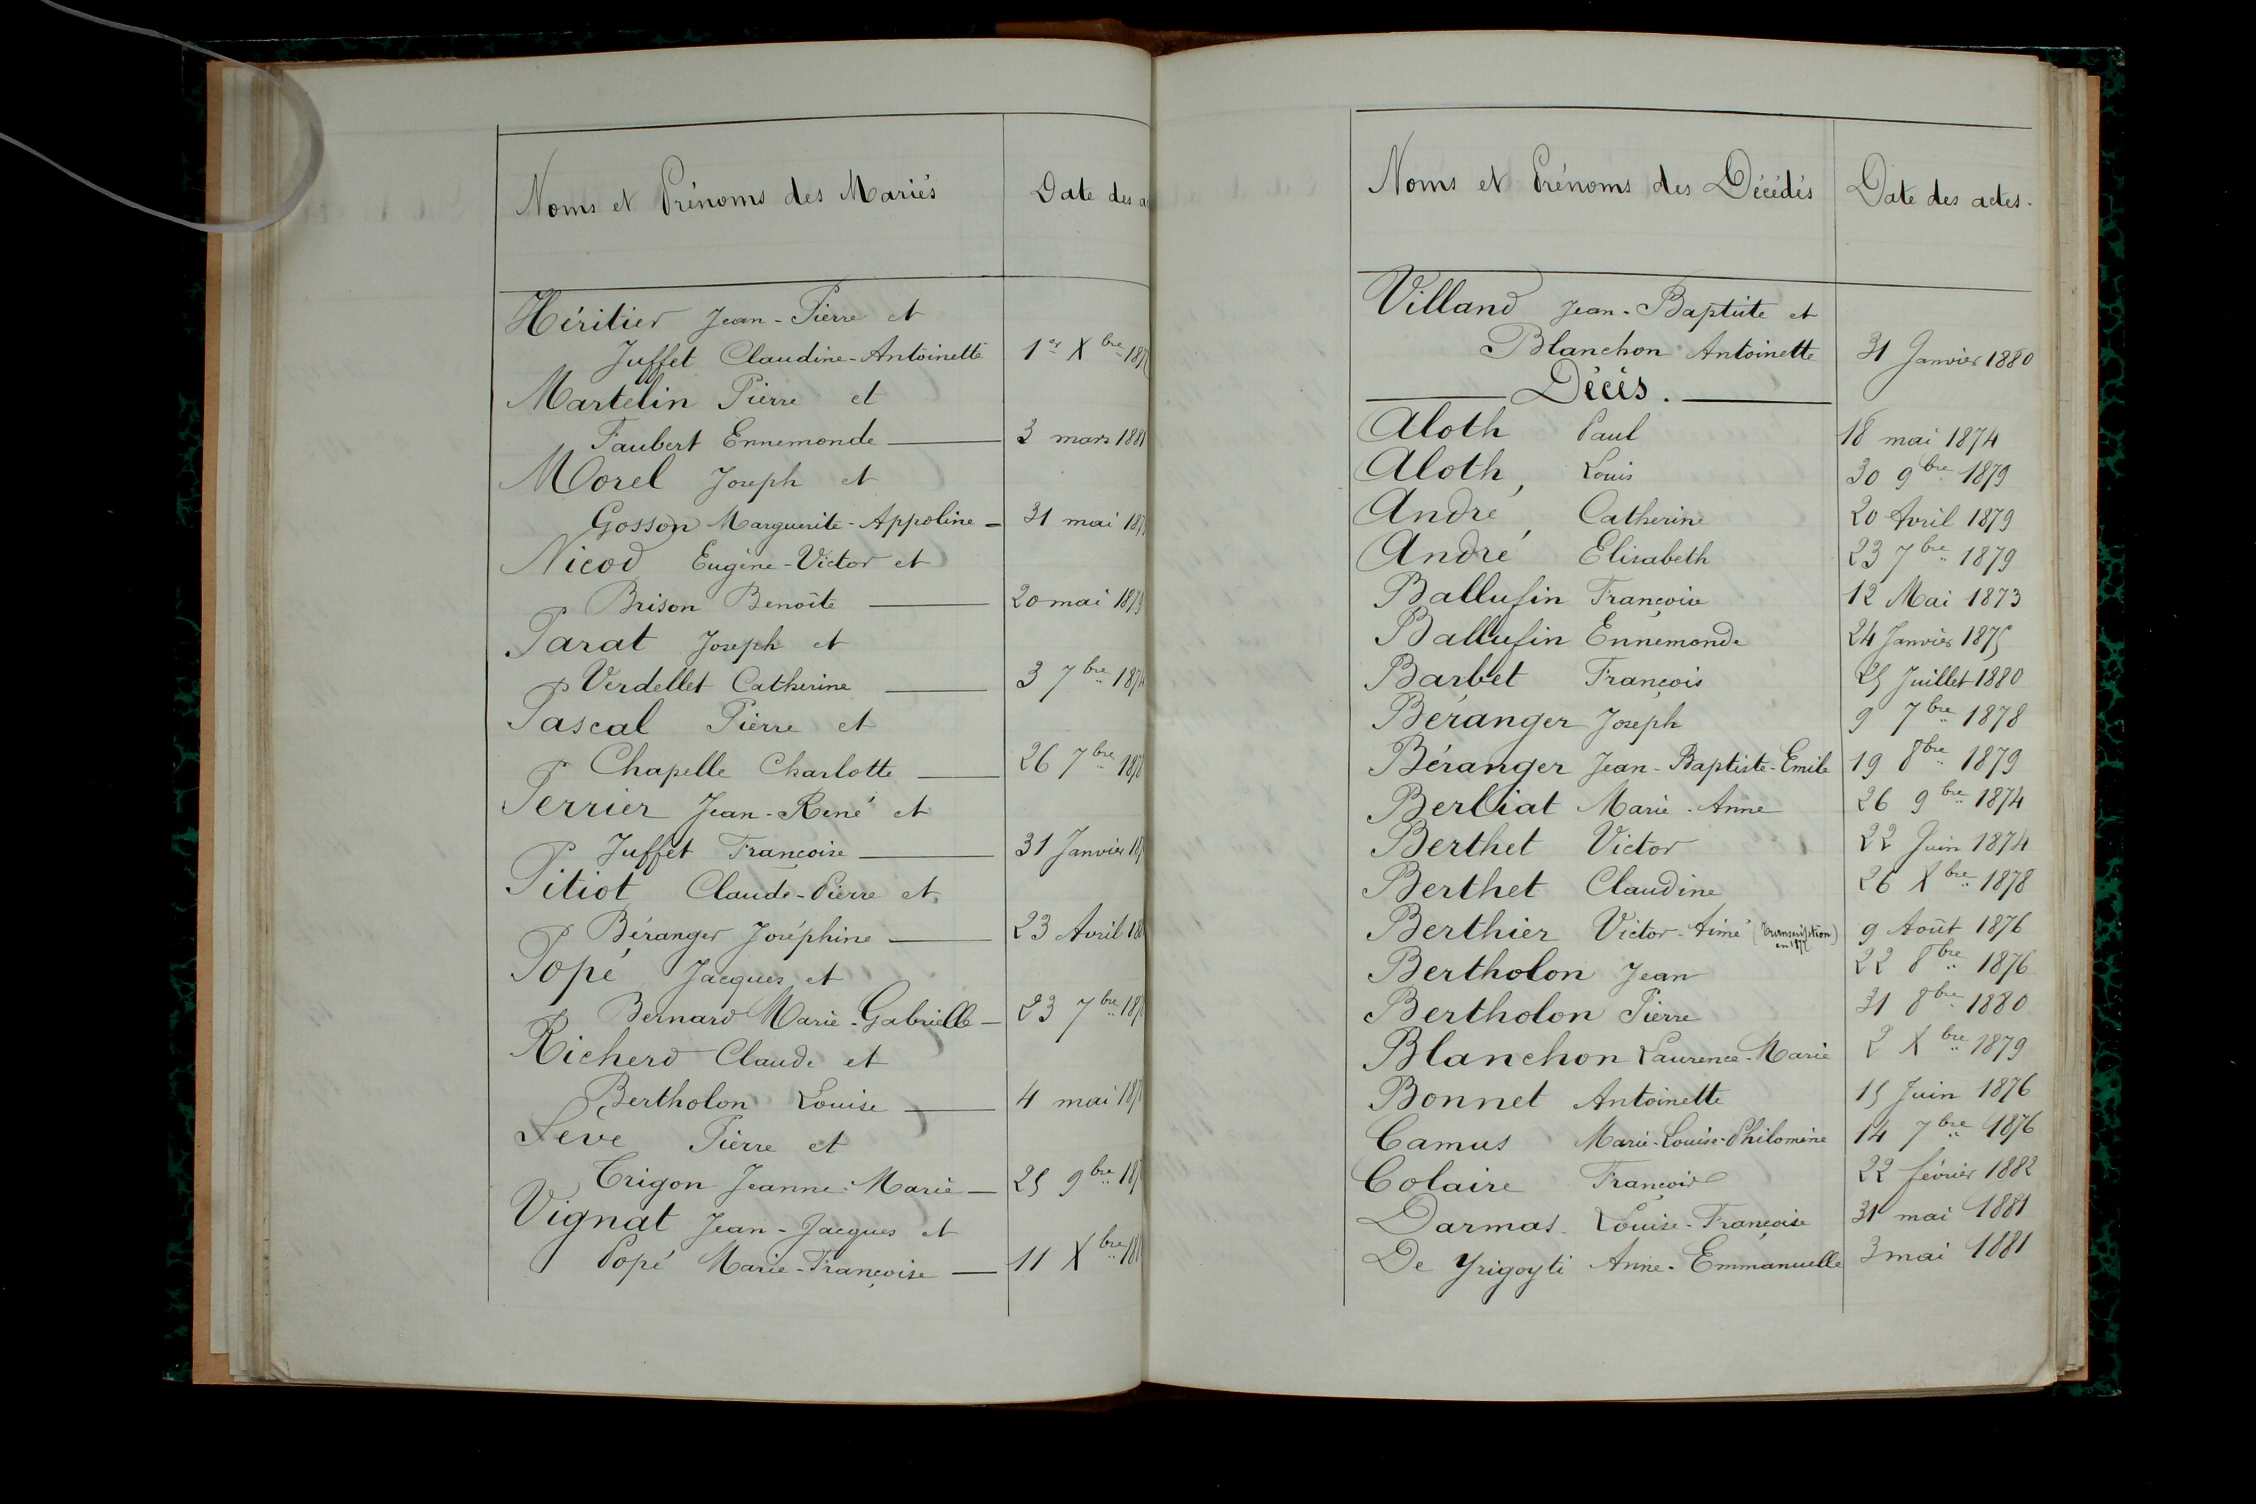 Noms et Prénoms des Mariés Date des
Héritier Jean-Pierre et
Juffet Claudine-Antoinette 1er Xbre
Martelin Pierre et
Faubert Ennemonde 3 mars 1881
Morel Joseph et
Gosson Marguerite-Appoline 31 mai
Nicod Eugène-Victor et
Brison Benoîte 20 mai 1879
Parat Joseph et
Verdellet Catherine 3 7bre
Pascal Pierre et
Chapelle Charlotte 26 7bre
Perrier Jean-René et
Juffet Françoise 31 Janvier
Pitiot Claude-Pierre et
Béranger Joséphine 23 Avril
Popé Jacques et
Bernard Marie-Gabrielle 23 7bre
Richerd Claude et
Bertholon Louise 4 mai
Seve Pierre et
Trigon Jeanne-Marie 25 9bre
Vignat Jean-Jacques et
Popé Marie-Françoise 11 Xbre
Noms et Prénoms des Décédés Date des actes.
Villand Jean-Baptiste et
Blanchon Antoinette 31 Janvier 1880
Décès.
Aloth Paul 18 mai 1874
Aloth, Louis 30 9bre 1879
André Catherine 20 Avril 1879
André Elisabeth 23 7bre 1879
Ballufin Françoise 12 Mai 1873
Ballufin Ennemonde 24 Janvier 1875
Barbet François 25 Juillet 1880
Béranger Joseph 9 7bre 1878
Béranger Jean-Baptiste-Emile 19 8bre 1879
Berliat Marie-Anne 26 9bre 1874
Berthet Victor 22 Juin 1874
Berthet Claudine 26 Xbre 1878
Berthier Victor-Aimé (Transcription en 1877) 9 Août 1876
Bertholon Jean 22 8bre 1876
Bertholon Pierre 31 8bre 1880
Blanchon Laurence-Marie 2 Xbre 1879
Bonnet Antoinette 15 Juin 1876
Camus Marie-Louise-Philomène 14 7bre 1876
Colaire François 22 février 1882
Darmas Louise-Françoise 31 mai 1881
De Yrigoyti Anne-Emmanuelle 3 mai 1881